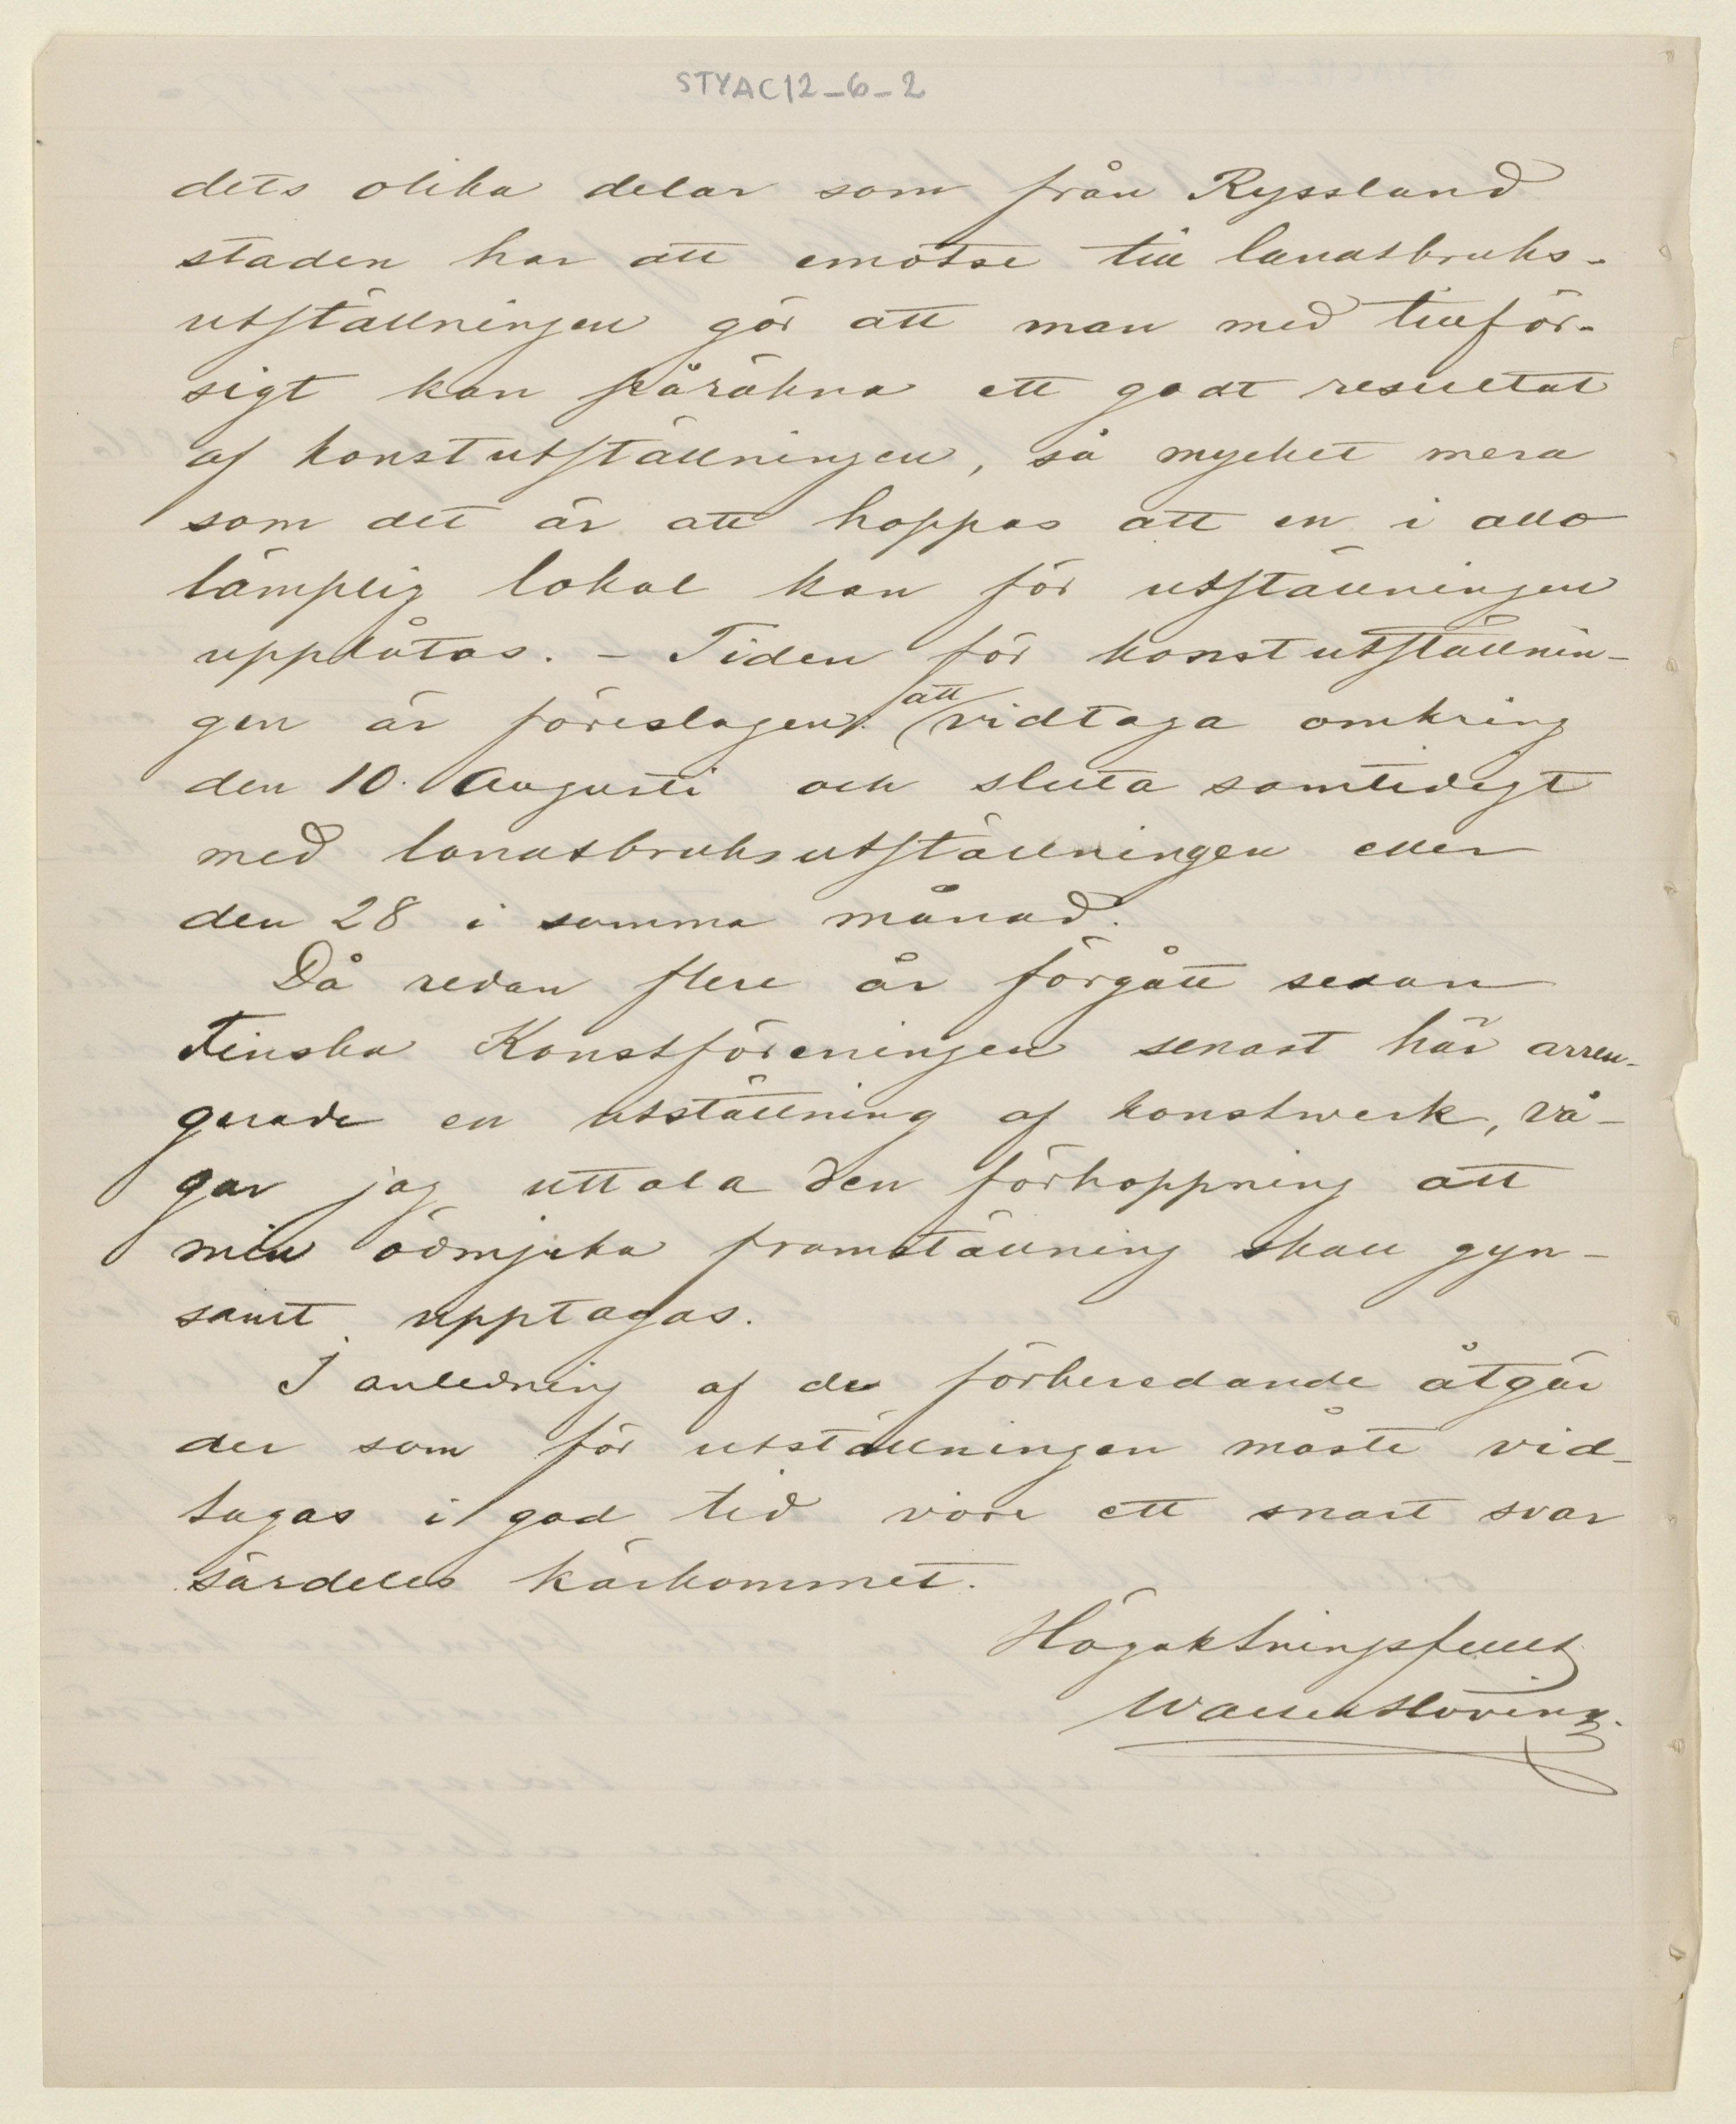 STYAC12-6-2
dets olika delar som från Ryssland
staden har att emotse till landtbruks-
utställningen gör att man med tillför-
sigt kan påräkna ett godt resultat
af konstutställningen, så mycket mera
som det är att hoppas att en i allo
lämplig lokal kan för utställningen
upplåtas. – Tiden för konstutställnin-
gen är föreslagen att vidtaga omkring
den 10. Augusti och sluta samtidigt
med landtbruksutställningen eller
den 28 i samma månad.
Då redan flere år förgått sedan
Finska Konstföreningen senast här arren-
gerade en utställning af konstwerk, vå-
gar jag uttala den förhoppning att
min ödmjuka framställning skall gyn-
samt upptagas.
I anledning af de förberedande åtgär
der som för utställningen måste vid-
tagas i god tid vore ett snart svar
särdeles kärkommet.
Högaktningsfullt
Walter Hoving.